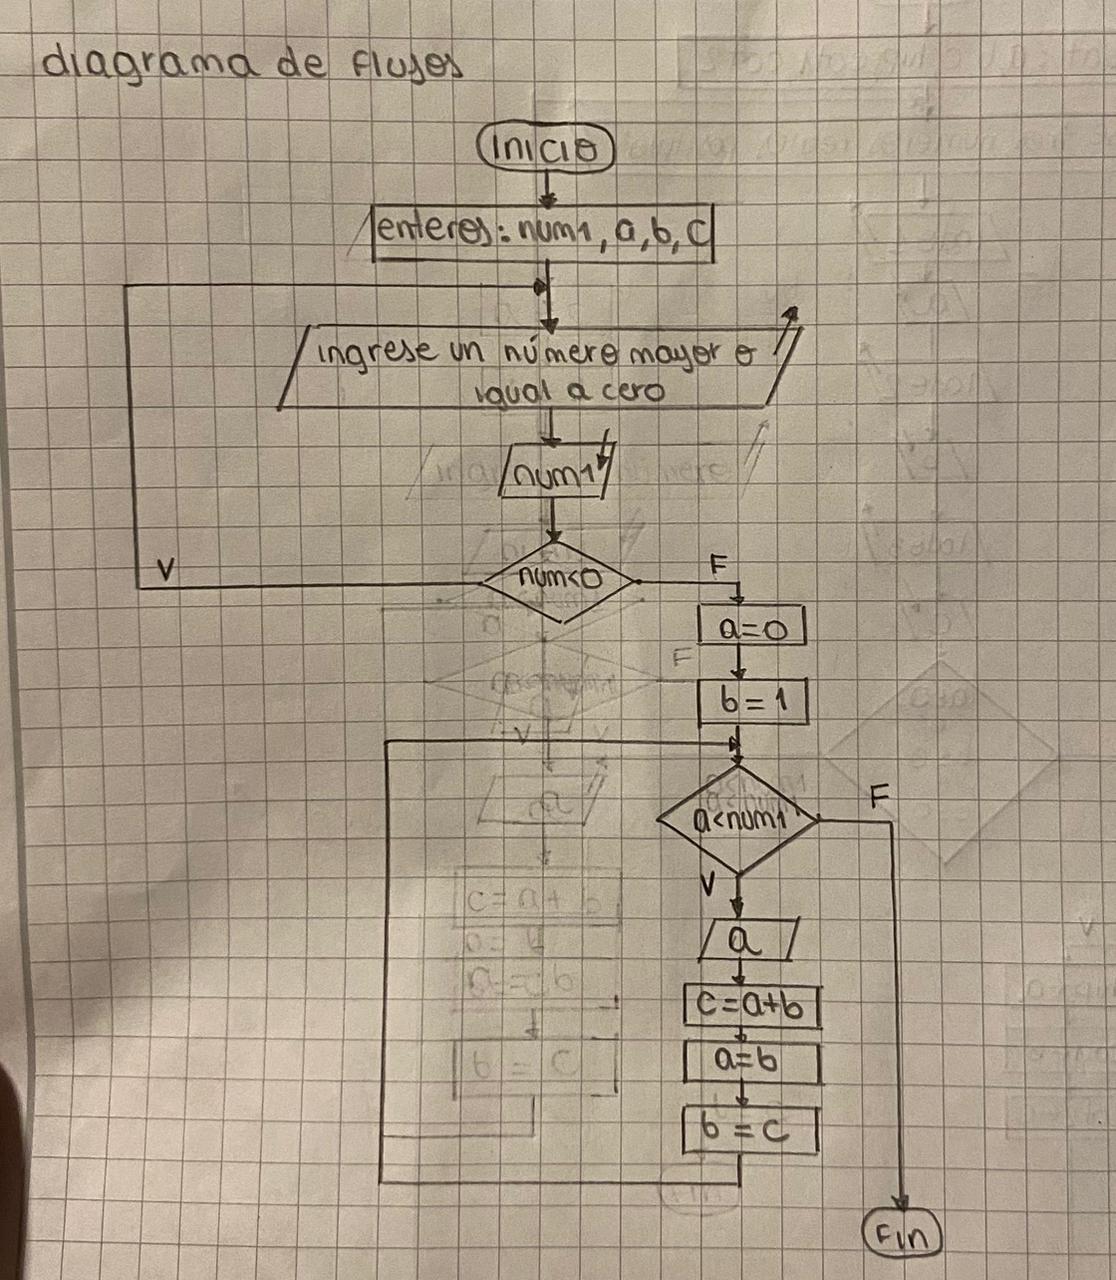 diagrama de flujos
inicio
enteros: num1, a, b, c
ingrese un número mayor o
igual a cero
num1
num<0
V
F
a=0
b=1
a<num1
F
V
a
c=a+b
a=b
b=c
Fin